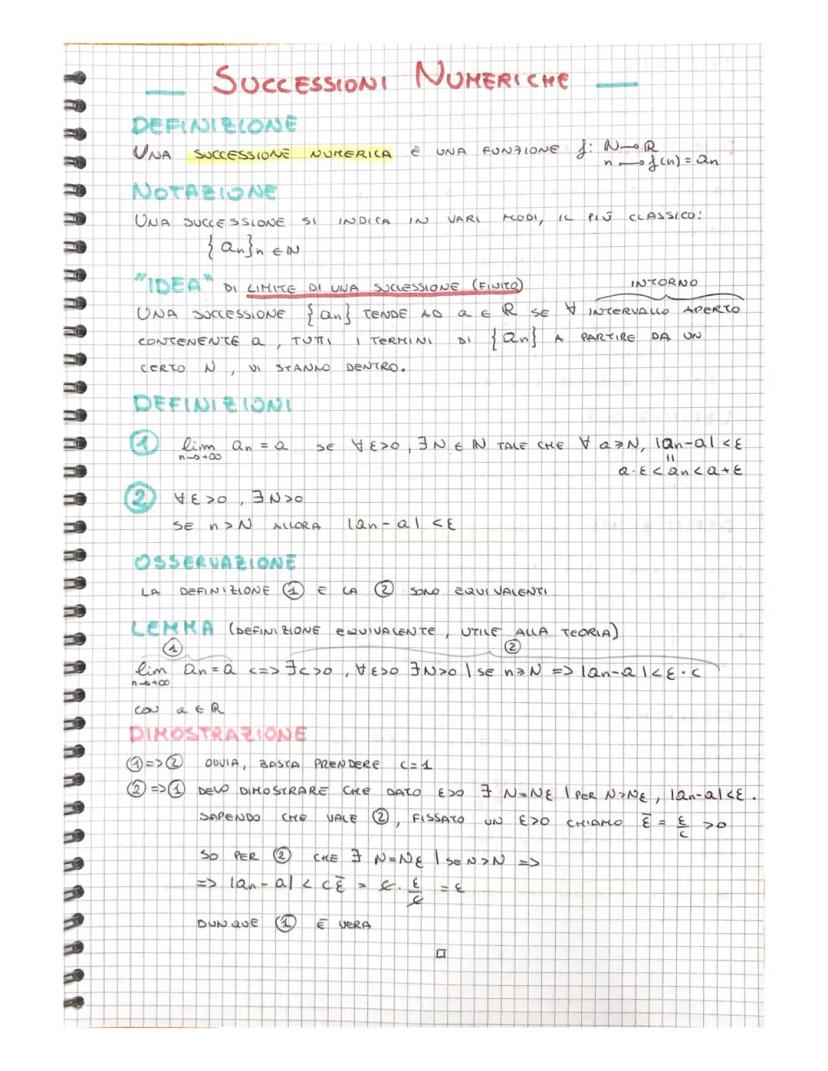 SUCCESSIONI NUMERICHE
DEFINIZIONE
UNA SUCCESSIONE NUMERICA È UNA FUNZIONE f: N→R
n→f(n)=an
NOTAZIONE
UNA SUCCESSIONE SI INDICA IN VARI MODI, IL PIÙ CLASSICO:
{an}n∈N
"IDEA" DI LIMITE DI UNA SUCCESSIONE (FINITO) INTORNO
UNA SUCCESSIONE {an} TENDE AD a ∈ R SE ∀ INTERVALLO APERTO
CONTENENTE a, TUTTI I TERMINI DI {an} A PARTIRE DA UN
CERTO N, VI STANNO DENTRO.
DEFINIZIONI
① lim an = a SE ∀ε>0, ∃N∈N TALE CHE ∀ a≥N, |an-a|<ε
n→+∞ 
a-ε<an<a+ε
② ∀ε>0, ∃N>0
SE n>N ALLORA |an-a|<ε
OSSERVAZIONE
LA DEFINIZIONE ① E LA ② SONO EQUIVALENTI
LEMMA (DEFINIZIONE EQUIVALENTE, UTILE ALLA TEORIA)
① ②
lim an=a <=> ∃c>0, ∀ε>0 ∃N>0 | se n≥N => |an-a|<ε·c
n→+∞
CON a∈R
DIMOSTRAZIONE
①=>② OVVIA, BASTA PRENDERE C=1
②=>① DEVO DIMOSTRARE CHE DATO ε>0 ∃ N=Nε | PER N>Nε, |an-a|<ε.
SAPENDO CHE VALE ②, FISSATO UN ε>0 CHIAMO ε̄ = ε/c >0
SO PER ② CHE ∃ N=Nε | se N>N =>
=> |an-a| < cε̄ = c·ε/c = ε
DUNQUE ① È VERA
□